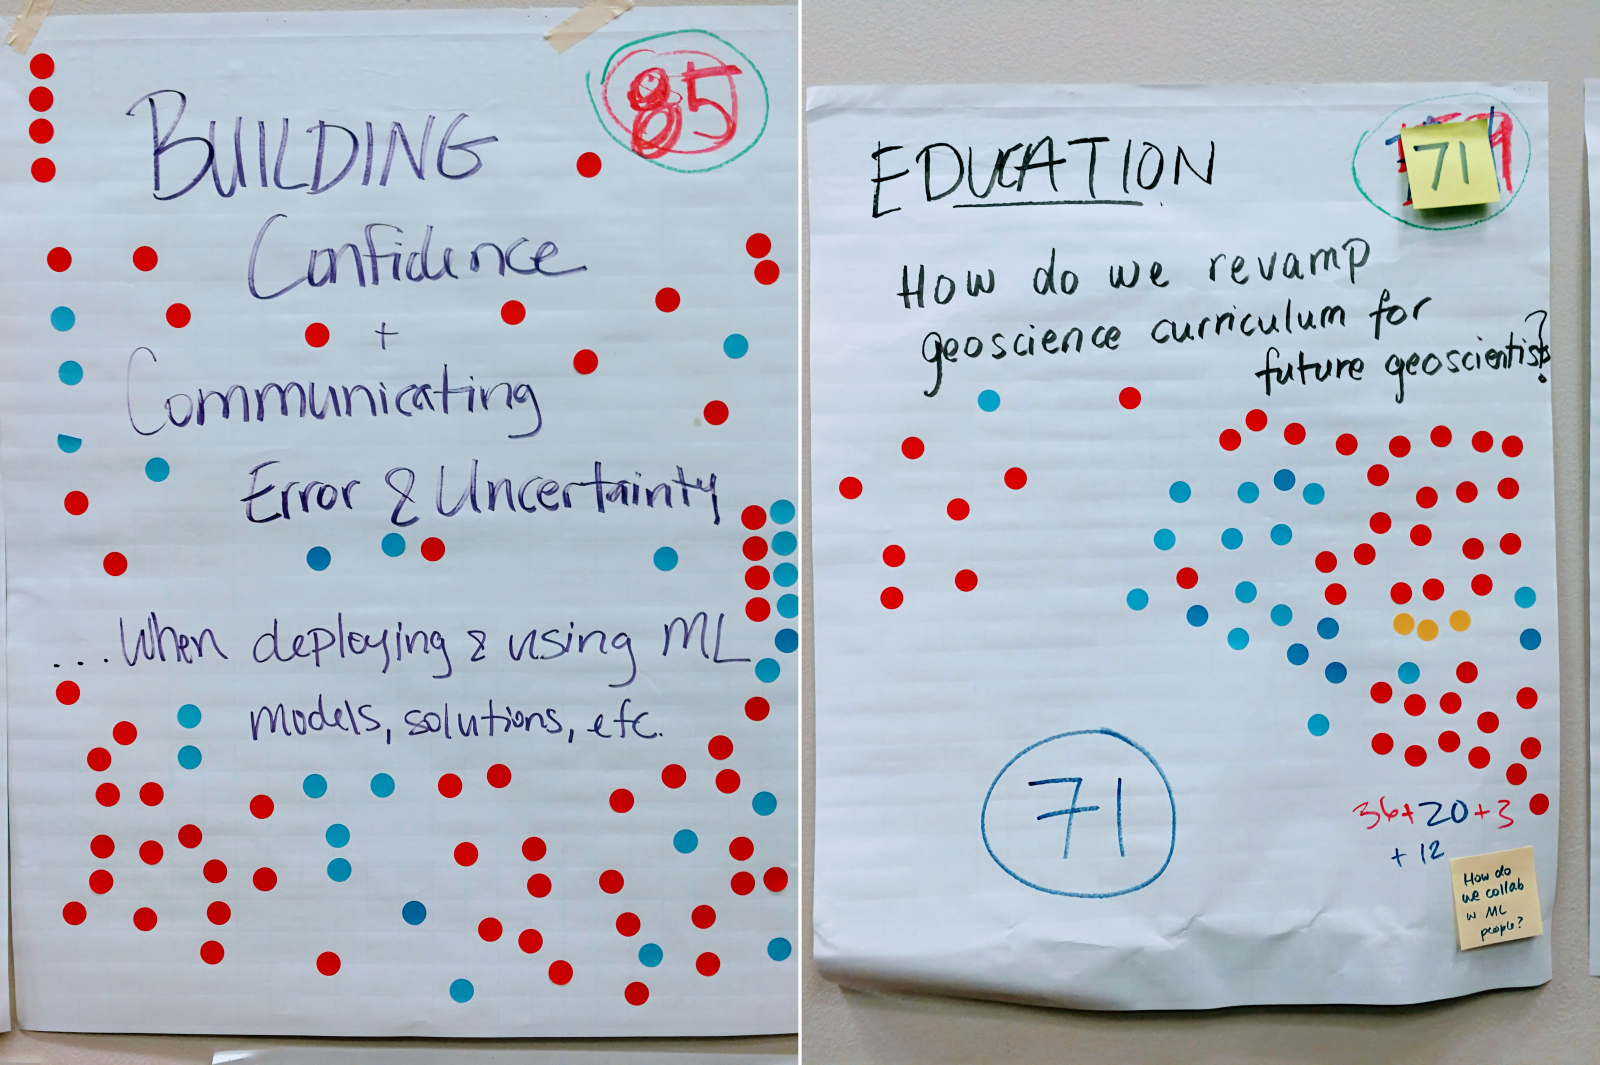 85
BUILDING
Confidence
+
Communicating
Error & Uncertainty
...When deploying & using ML
models, solutions, etc.
EDUCATION
71
How do we revamp
geoscience curriculum for
future geoscientists?
71
36+20+3
+12
How do
we collab
w ML
people?